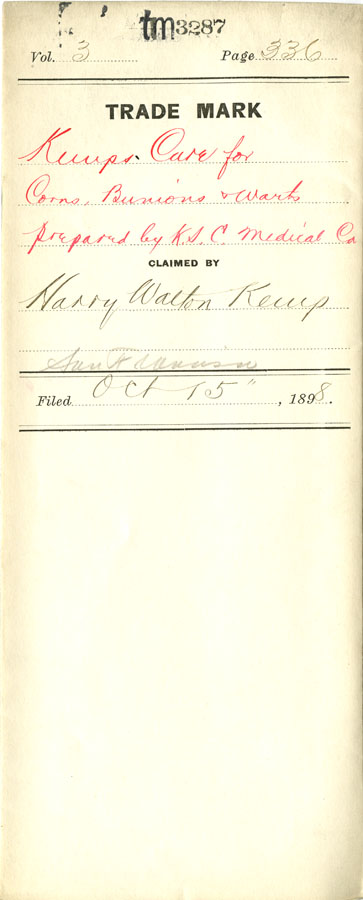 tm3287
Vol. 3 Page 336
TRADE MARK
Kemps Cure for
Corns, Bunions & Warts
prepared by K.S.C. Medical Co
CLAIMED BY
Harry Walton Kemp
San Francisco
Filed Oct 15", 1898.